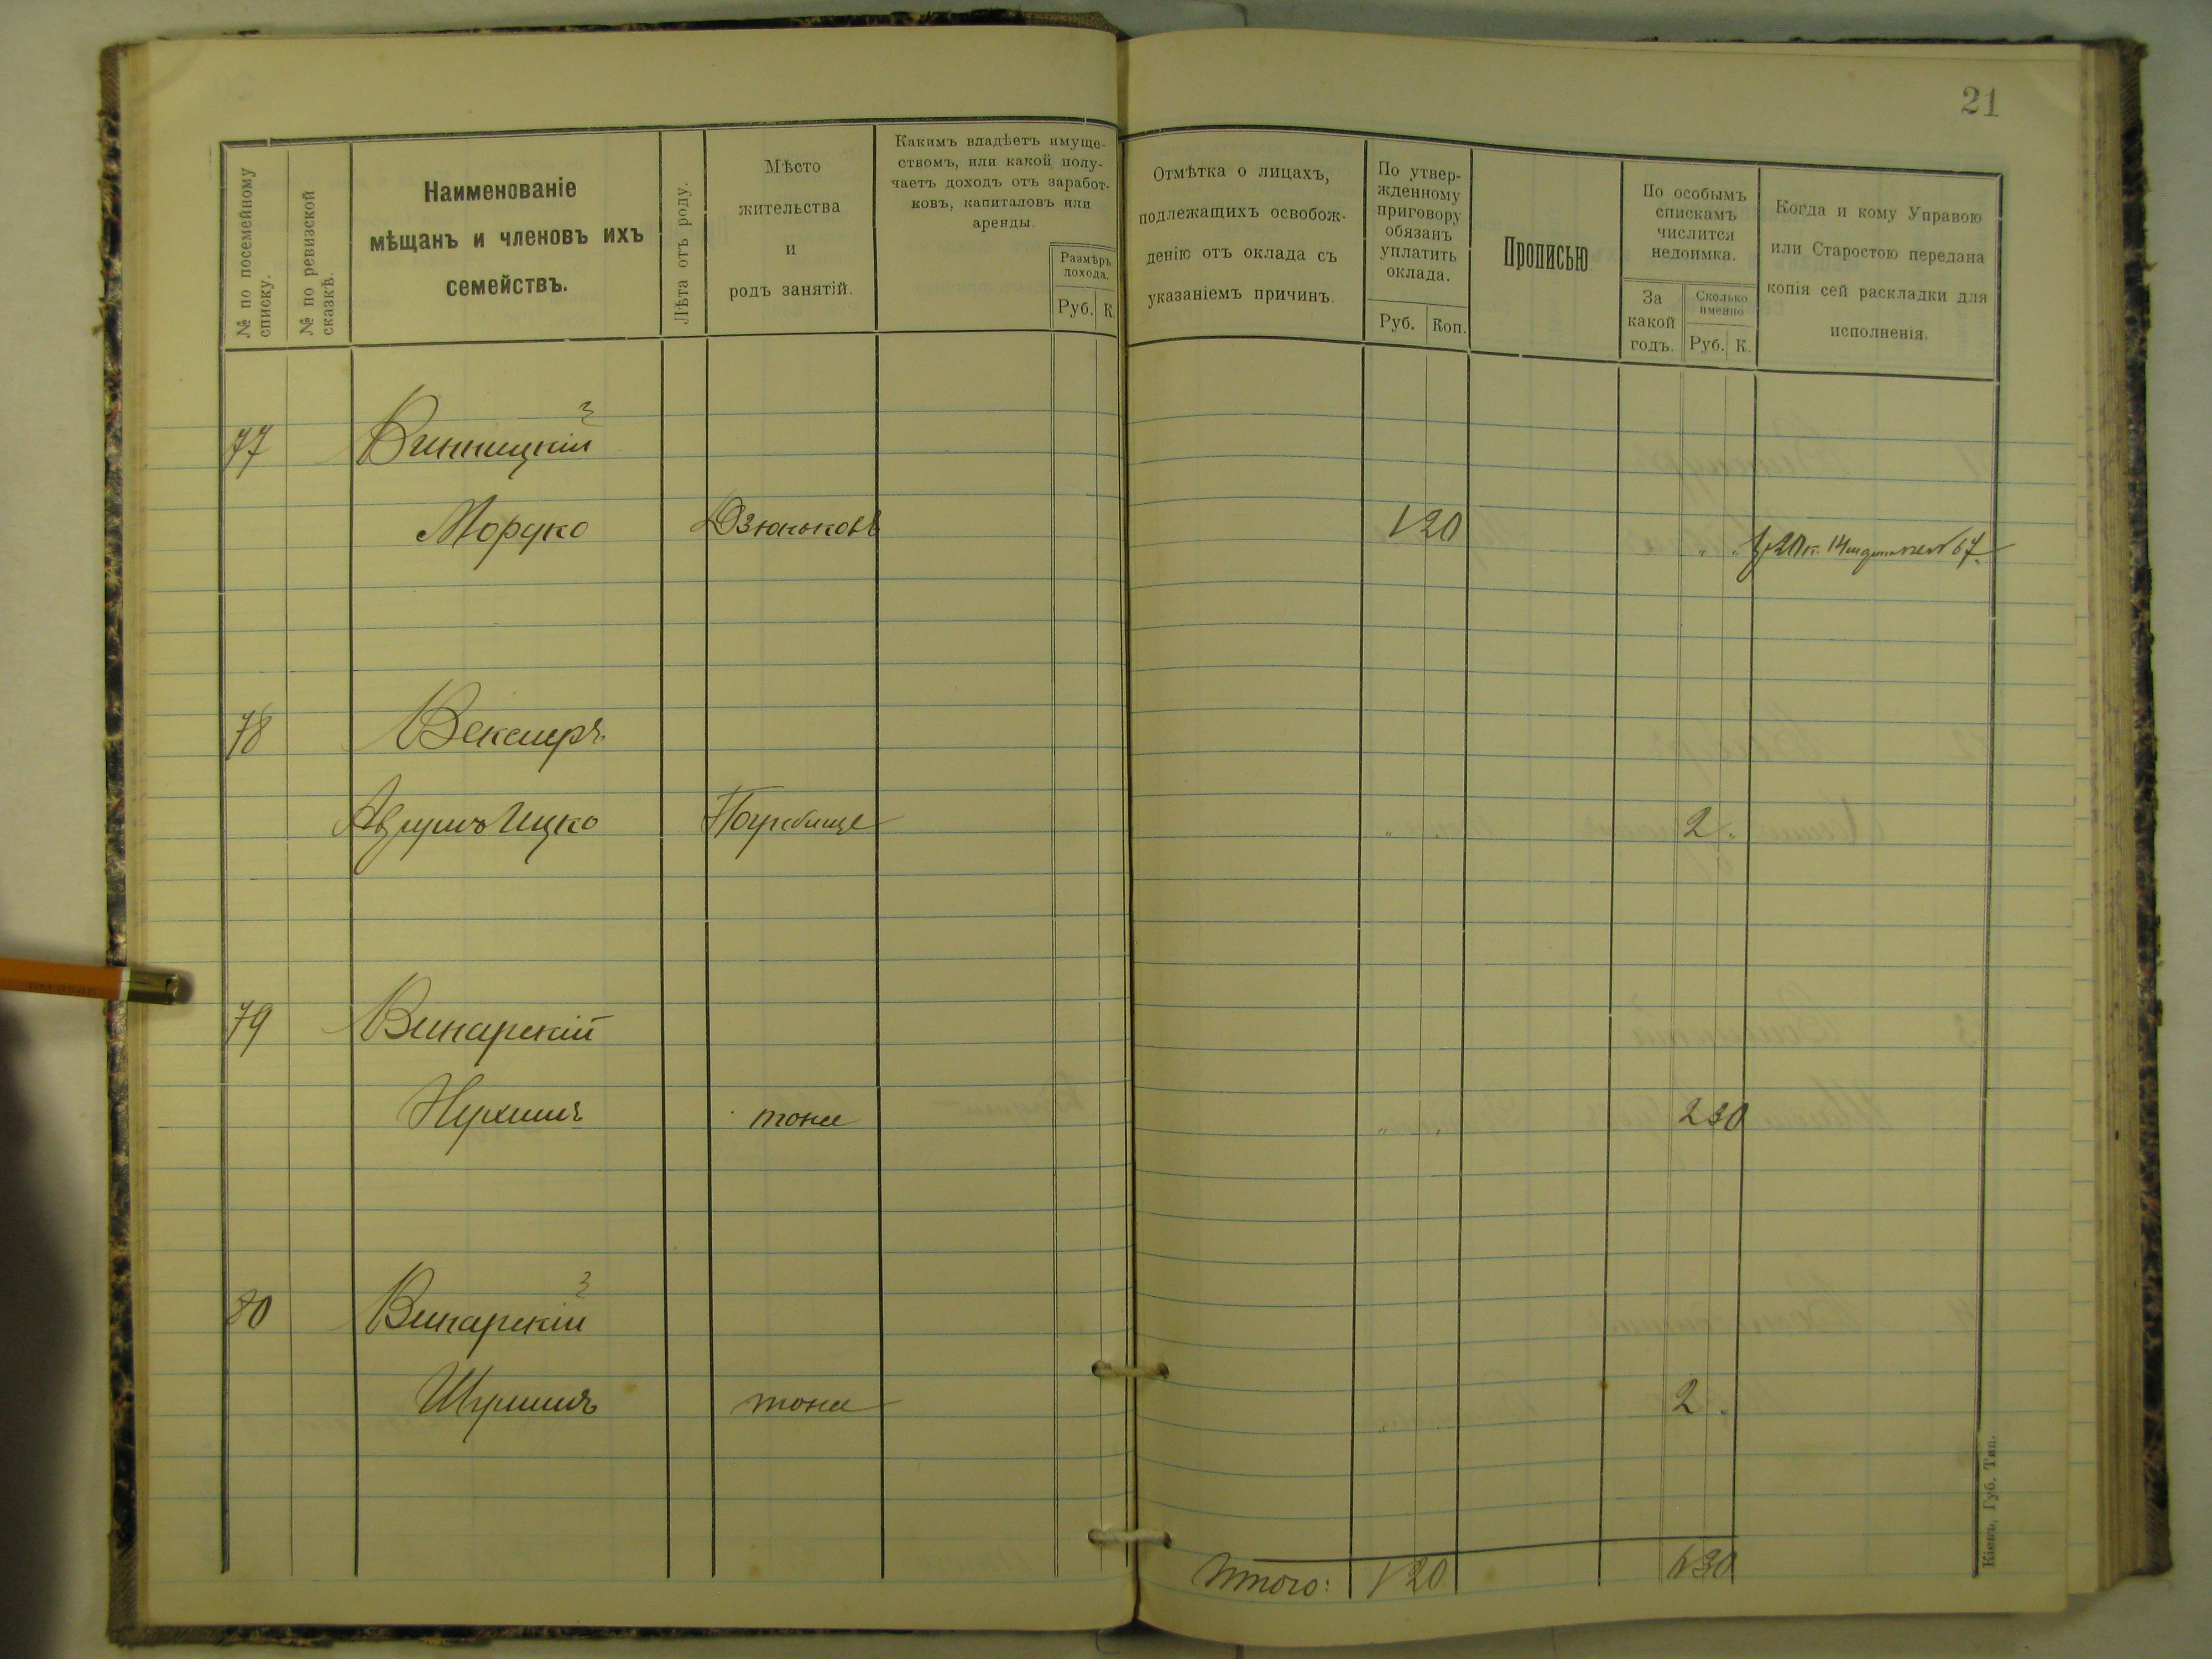 21
№ по посемейному списку.
№ по ревизской сказкѣ.
Наименованіе
мѣщанъ и членовъ ихъ
семействъ.
Лѣта отъ роду.
Мѣсто
жительства
и
родъ занятій.
Какимъ владѣетъ имуще-
ствомъ, или какой полу-
чаетъ доходъ отъ заработ-
ковъ, капиталовъ или
аренды.
Размѣръ
дохода.
Руб. К.
Отмѣтка о лицахъ,
подлежащихъ освобож-
денію отъ оклада съ
указаніемъ причинъ.
По утвер-
жденному
приговору
обязанъ
уплатить
оклада.
Руб. Коп.
Прописью
По особымъ
спискамъ
числится
недоимка.
За
какой
годъ.
Сколько
именно
Руб. К.
Когда и кому Управою
или Старостою передана
копія сей раскладки для
исполненія.
77 Винницкій
Мордко Дзюньковъ 1 20 " "
78 Векслеръ
Ицко Погребище " 2 "
79 Винарскій
Нухимъ тоже " " 2 30
80 Винарскій
Шулимъ тоже " 2 "
Итого: 1 20 6 30
Кіевъ, Губ. Тип.